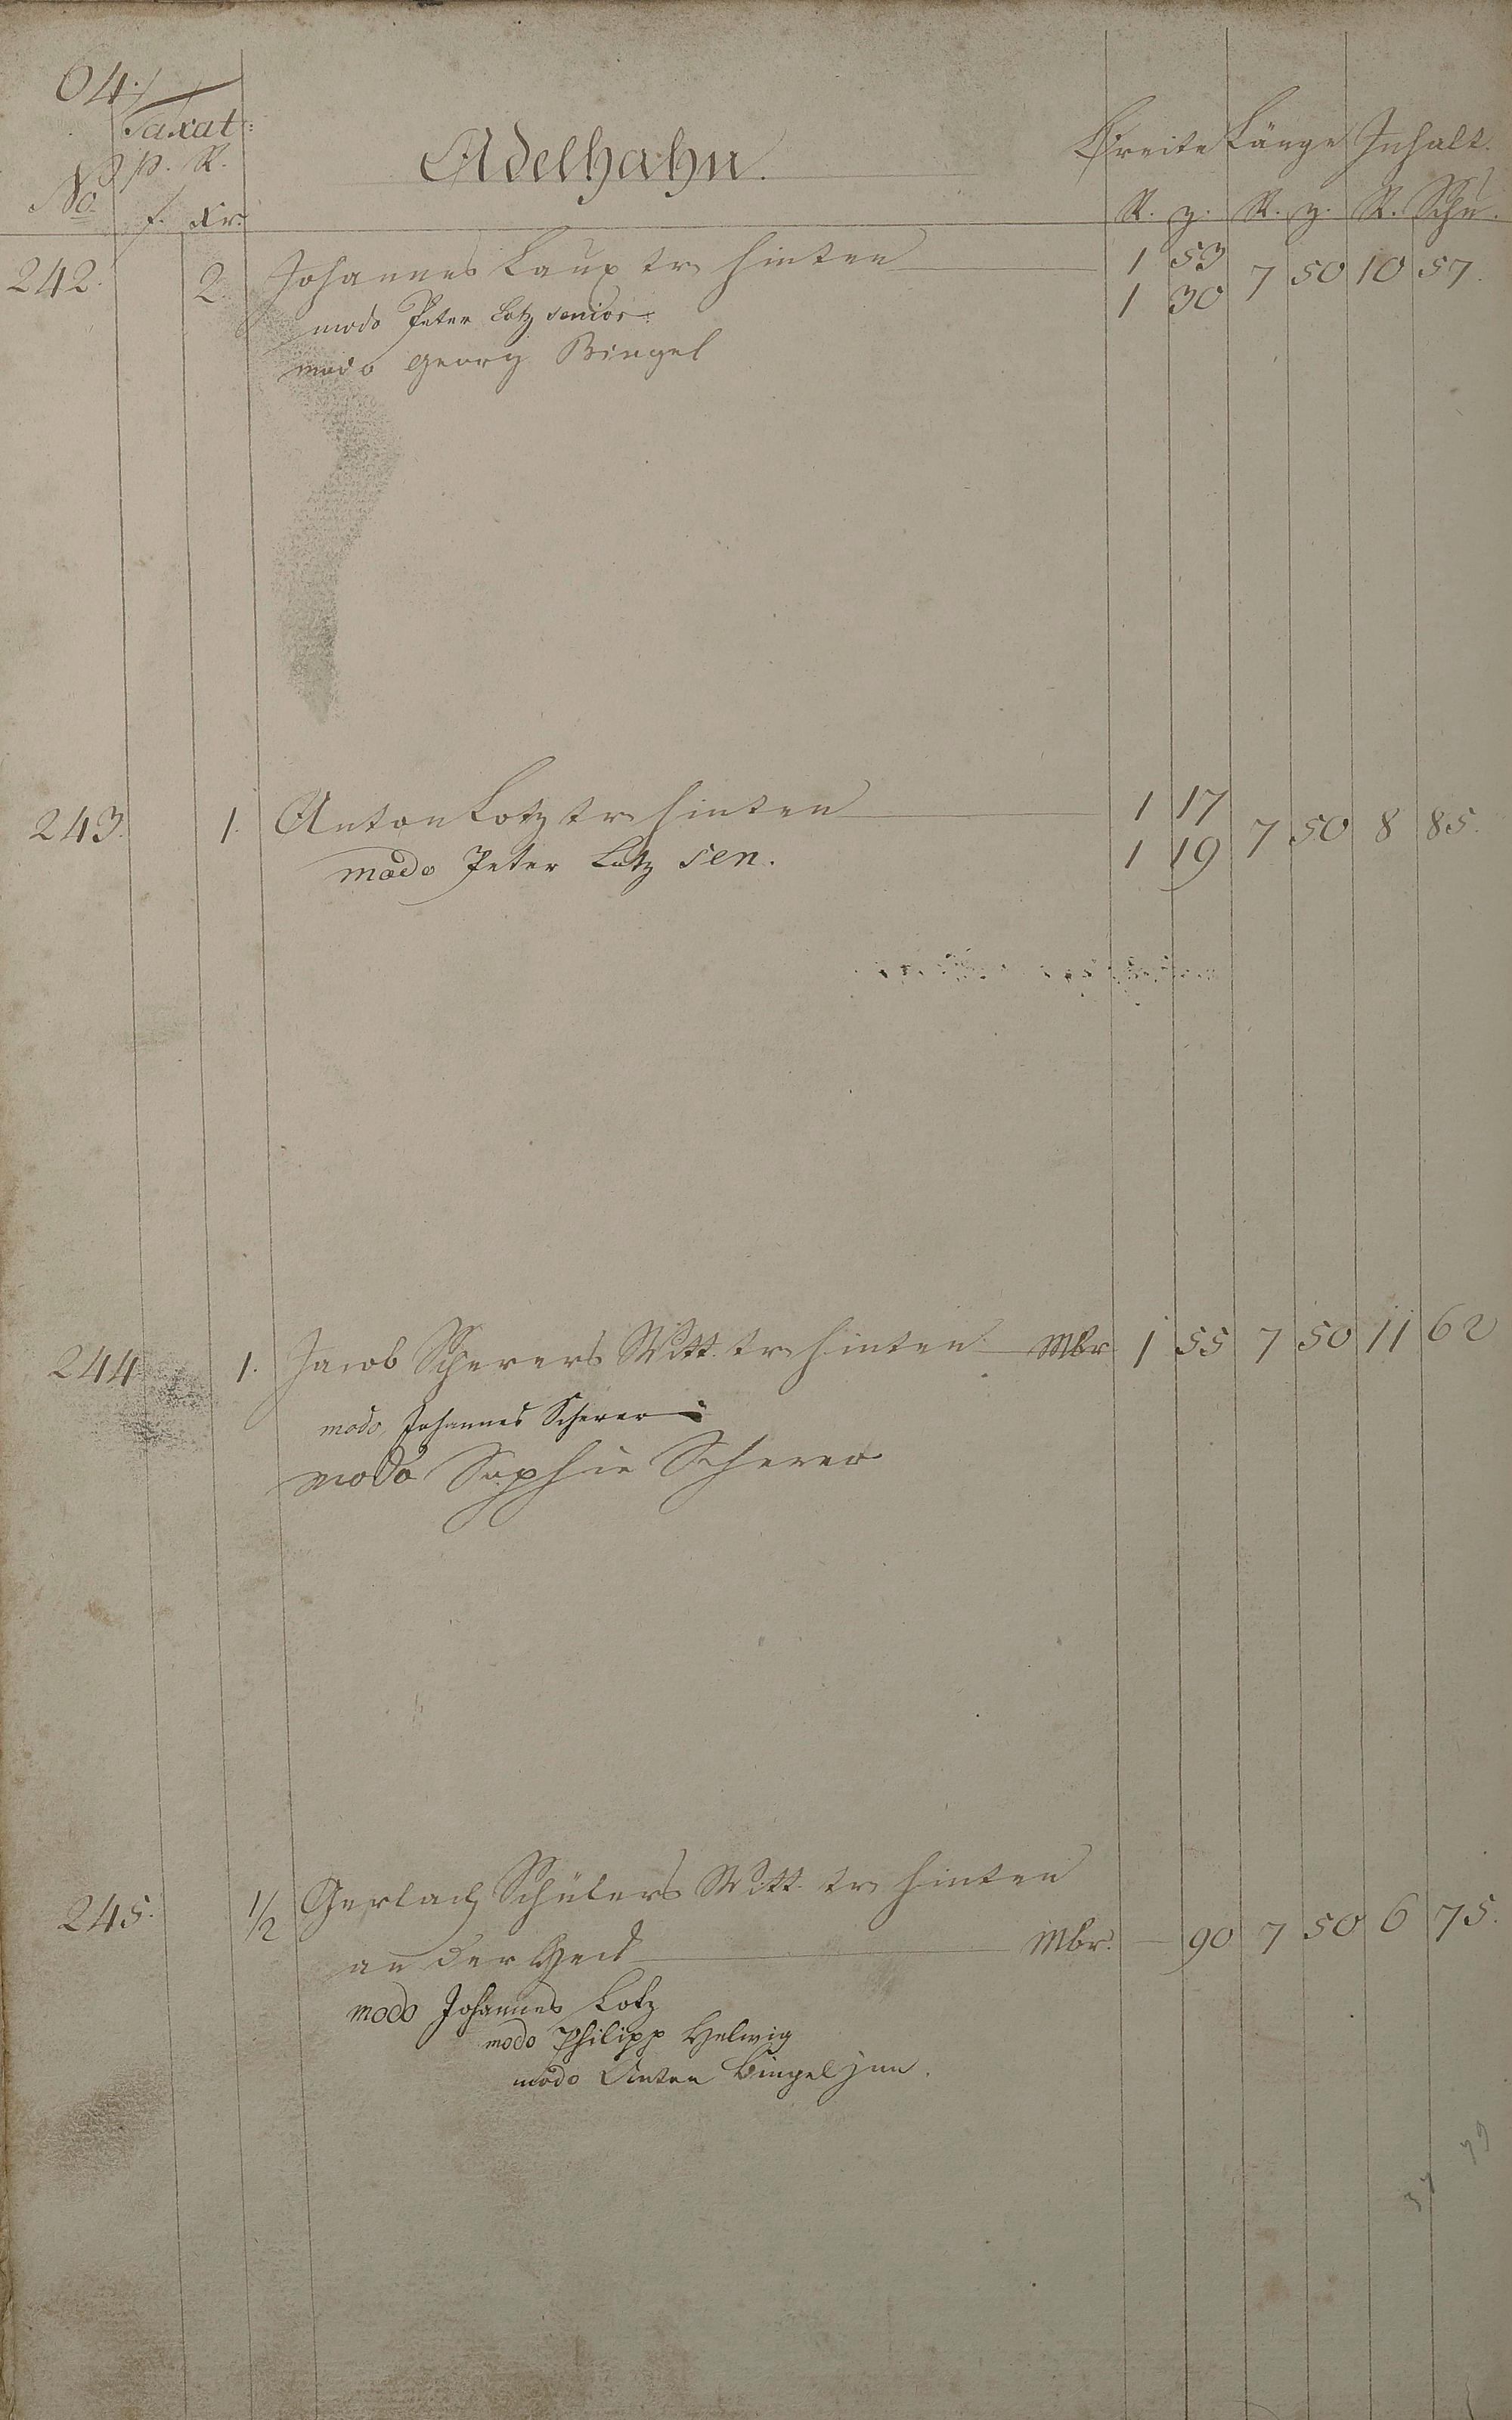 64.
Taxat:
No. p. R. Adelhahn. Breite Länge Inhalt.
f. Xr. R. z. R. z. R. Schu.
242. 2. Johannes Laux tr hinten 1 53 7 50 10 57.
modo Peter Lotz senior. 1 30
modo Georg Bingel
243. 1. Anton Lotz tr hinten 1 17 7 50 8 85.
modo Peter Lotz sen. 1 19
244 1. Jacob Scherers Witt. tr hinten Mbr 1 55 7 50 11 62
modo Johannes Scherer
modo Sophie Scherer
245. 1/2 Gerlach Schülers Witt. tr hinten
an der Mbr. — 90 7 50 6 75.
modo Johannes Lotz
modo Philipp Helwig
modo Anton Bingel jun.
37 79